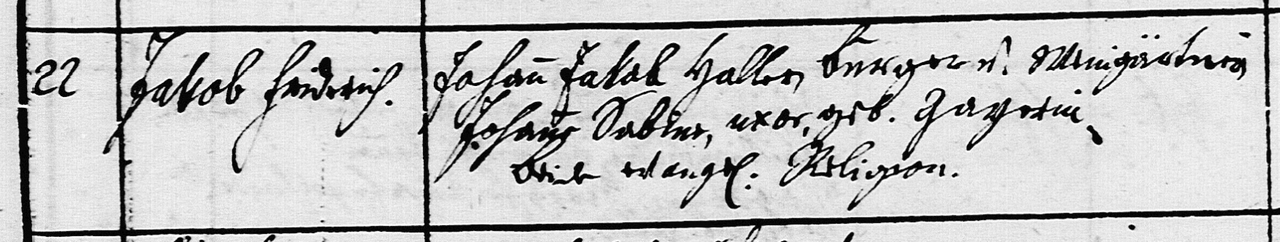 22 Jakob Friderich. Johann Jakob Haller, Burger u. Weingärtner
Johanne Sabine, uxor, geb. Zayerin,
beide evangel. Religion.